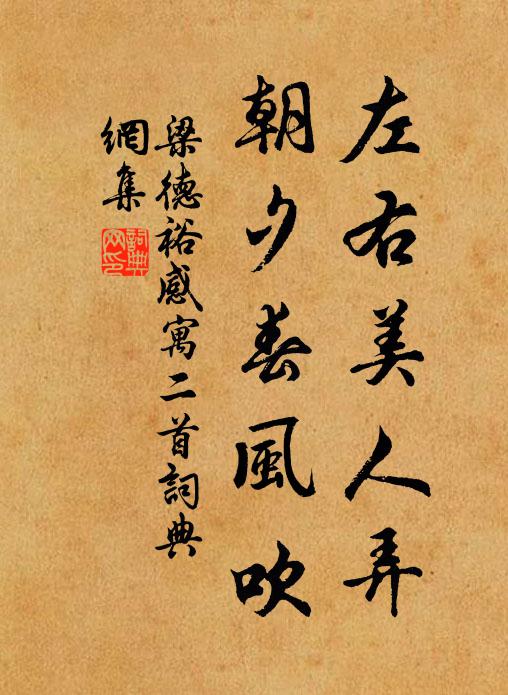 左右美人弄
朝夕春風吹
梁德裕感寓二首詞典
網集
詞典
網印